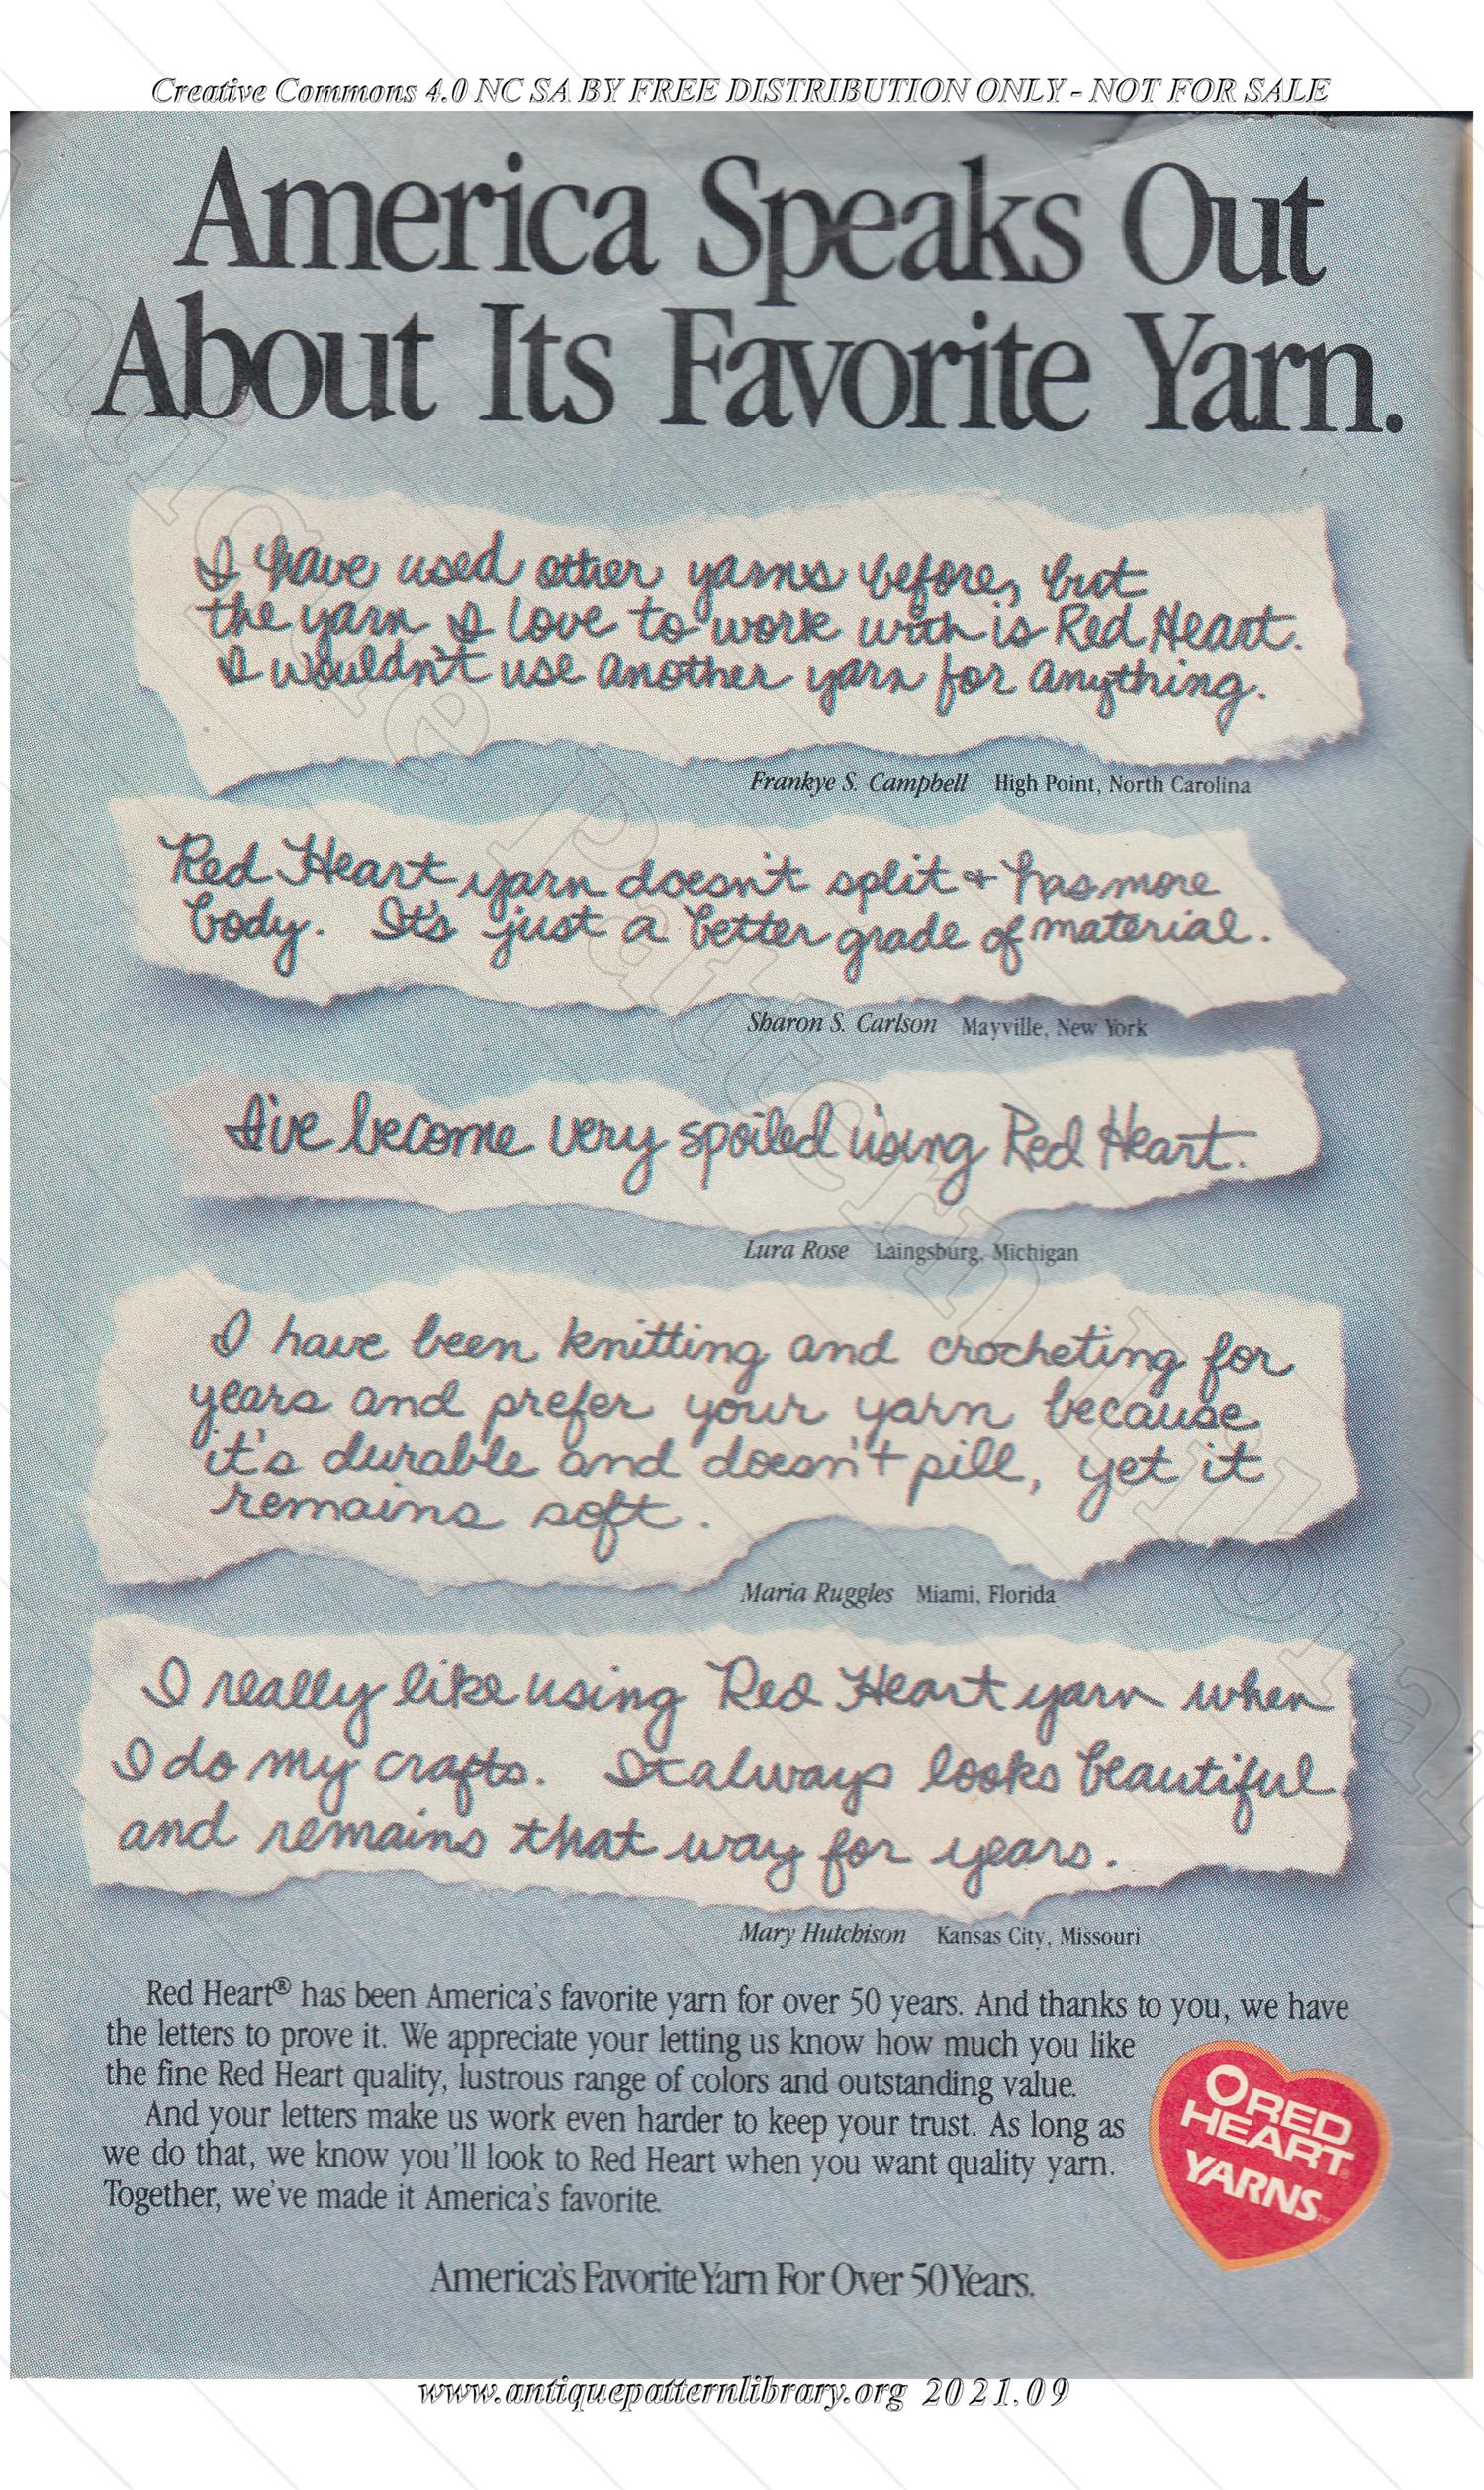 Creative Commons 4.0 NC SA BY FREE DISTRIBUTION ONLY - NOT FOR SALE
America Speaks Out
About Its Favorite Yarn.
I have used other yarns before, but
the yarn I love to work with is Red Heart.
I wouldn't use another yarn for anything.
Frankye S. Campbell High Point, North Carolina
Red Heart yarn doesn't split & has more
body. It's just a better grade of material.
Sharon S. Carlson Mayville, New York
I've become very spoiled using Red Heart.
Lura Rose Laingsburg, Michigan
I have been knitting and crocheting for
years and prefer your yarn because
it's durable and doesn't pill, yet it
remains soft.
Maria Ruggles Miami, Florida
I really like using Red Heart yarn when
I do my crafts. It always looks beautiful
and remains that way for years.
Mary Hutchison Kansas City, Missouri
Red Heart® has been America's favorite yarn for over 50 years. And thanks to you, we have
the letters to prove it. We appreciate your letting us know how much you like
the fine Red Heart quality, lustrous range of colors and outstanding value.
And your letters make us work even harder to keep your trust. As long as
we do that, we know you'll look to Red Heart when you want quality yarn.
Together, we've made it America's favorite.
RED
HEART®
YARNS™
America's Favorite Yarn For Over 50 Years.
www.antiquepatternlibrary.org 2021.09
Antique Pattern Library